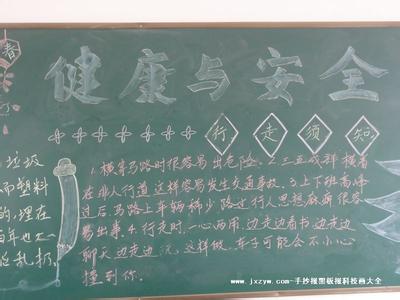 春
健康与安全
行走须知
垃圾
而塑料
的,埋在
百年也不
乱扔,
1.横穿马路时很容易出危险。2.三五成群横着
在非人行道,这样容易发生交通事故。3.上下班高峰
过后,马路上车辆稀少路过行人思想麻痹很容
易出事。4.行走时,一心两用,边走边看书边走边
聊天边走边玩,这样做,车子可能会不小心
撞到你。
www.jxzyw.com-手抄报图版报科技画大全